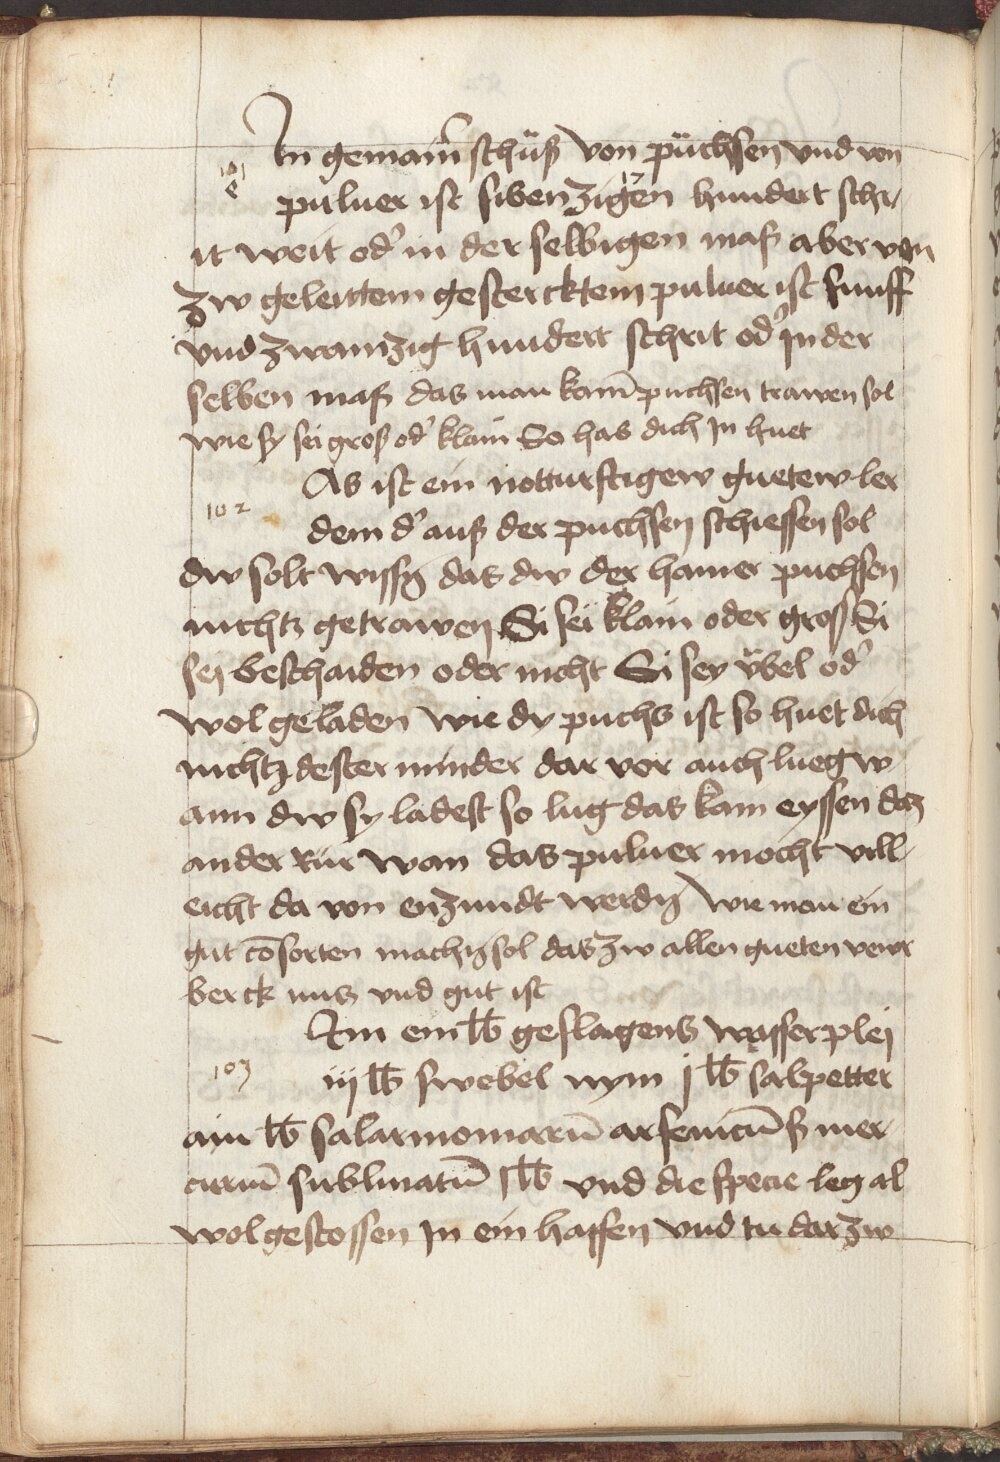 In gemain schüß von püchsen vnd von
101
e
puluer ist sibenzigen hundert schr¬
17
it weit od' in der selbigen maß aber von
zw geleittem gestercktem puluer ist funff
vnd zwainzig hundert schrit od' Jn der
selben maß das man kain̄ puchsen trawen sol
wie sy sei groß od' klain So has dich Jn huet
As ist ein notturftigew guetew ler
102
dem d' auß der puchsen schiessen sol
dw solt wissn̄ das dw der hainer puchsen
nichtz getrawen Si sei klain oder groß Si
sej beschaiden oder nicht Si sey v̈bel od'
wol geladen wie dy puchs ist so huet dich
nichtz dester minder dar vor auch lueg w¬
ann dw sy ladest so lug das kain eyssen daz
ander rür wan das puluer mocht vill¬
eicht da von enzundt werdn̄ wie man ein
gut cōsorten machn̄ sol das zw allen gueten vewr
berck nutz vnd gut ist
Em ein lb geslagens wasserplej
103
iij lb swebel nym j lb salpetter
ain lb salarmoniacū arsenicū ß mer¬
curiū sublimatū j lb vnd die specie leg al
wol gestossen Jn ein haffen vnd tu dar zw